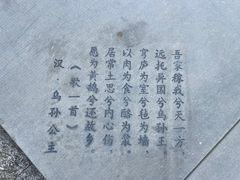 吾家嫁我兮天一方，
远托异国兮乌孙王
穹庐为室兮毡为墙
以肉为食兮酪为浆
居常土思兮内心伤
愿为黄鹄兮还故乡
《歌一首》
汉·乌孙公主